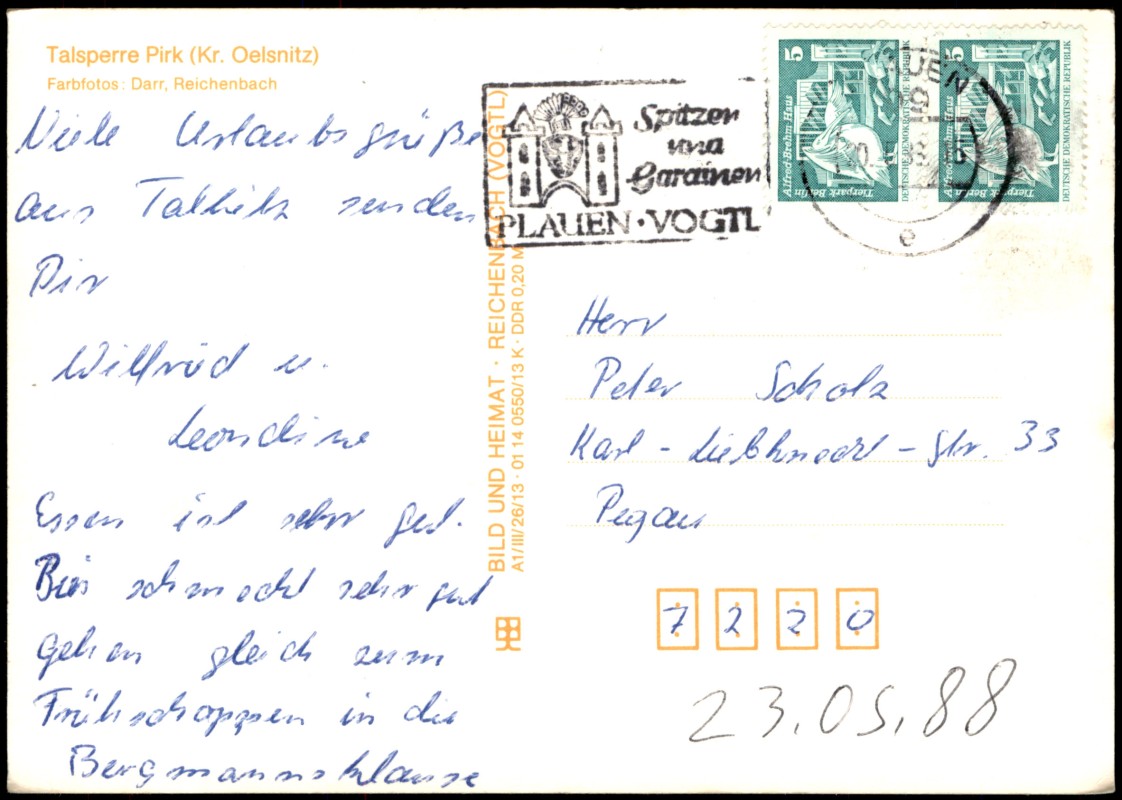 Talsperre Pirk (Kr. Oelsnitz)
Farbfotos: Darr, Reichenbach
Viele Urlaubsgrüße
aus senden
Dir
Willfried u.
Leondine
Essen ist sehr gut.
Bier schmeckt sehr gut
gehen gleich zum
Frühschoppen in die
Bergmannsklause
BILD UND HEIMAT · REICHENBACH (VOGTL)
A1/III/26/13 · 01 14 0550/13 K · DDR 0,20 M
Spitzen
und
Gardinen
PLAUEN · VOGTL
5
Alfred-Brehm-Haus
Tierpark Berlin
DEUTSCHE DEMOKRATISCHE REPUBLIK
5
Alfred-Brehm-Haus
Tierpark Berlin
DEUTSCHE DEMOKRATISCHE REPUBLIK
e
Herr
Peter Scholz
Karl-Liebknecht-Str. 33
Pegau
7 2 2 0
23.05.88